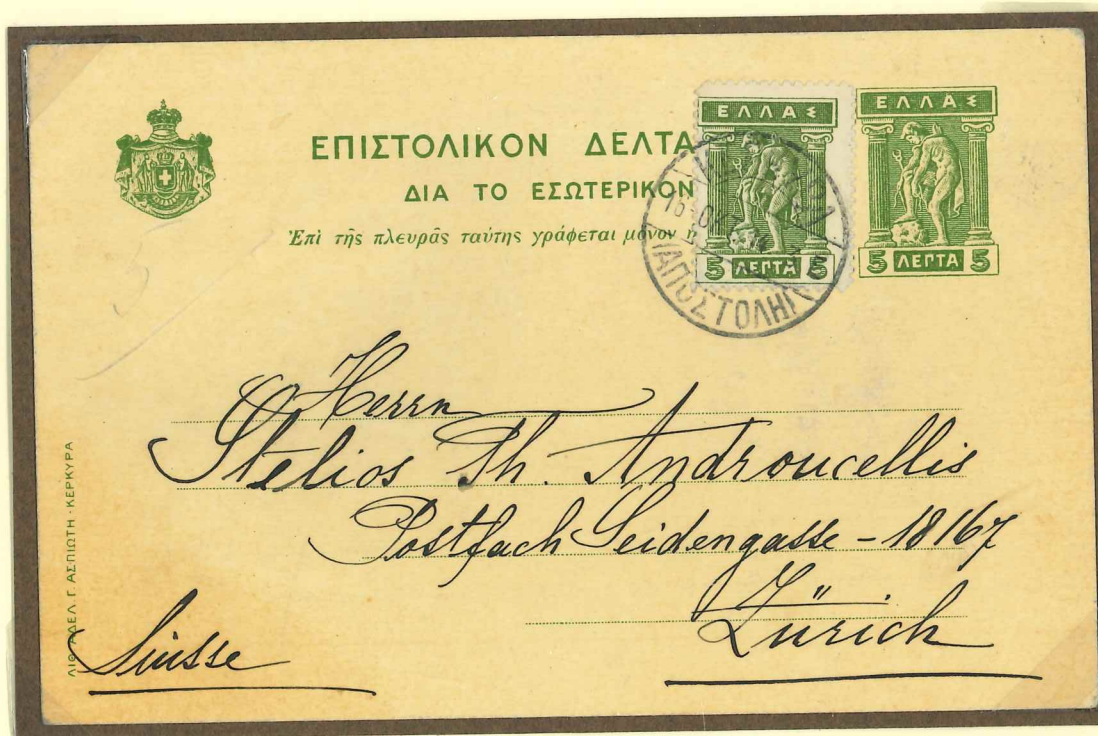 ΕΛΛΑΣ
ΕΛΛΑΣ
ΕΠΙΣΤΟΛΙΚΟΝ ΔΕΛΤΑ
ΔΙΑ ΤΟ ΕΣΩΤΕΡΙΚΟΝ
Ἐπὶ τῆς πλευρᾶς ταύτης γράφεται μόνον ἡ
5 ΛΕΠΤΑ 5
5 ΛΕΠΤΑ 5
ΑΠΟΣΤΟΛΗ
Herrn
Stelios Th. Androucellis
Postfach Seidengasse - 18167
Zürich
Suisse
ΛΙΘ. ΑΔΕΛ. Γ. ΑΣΠΙΩΤΗ - ΚΕΡΚΥΡΑ